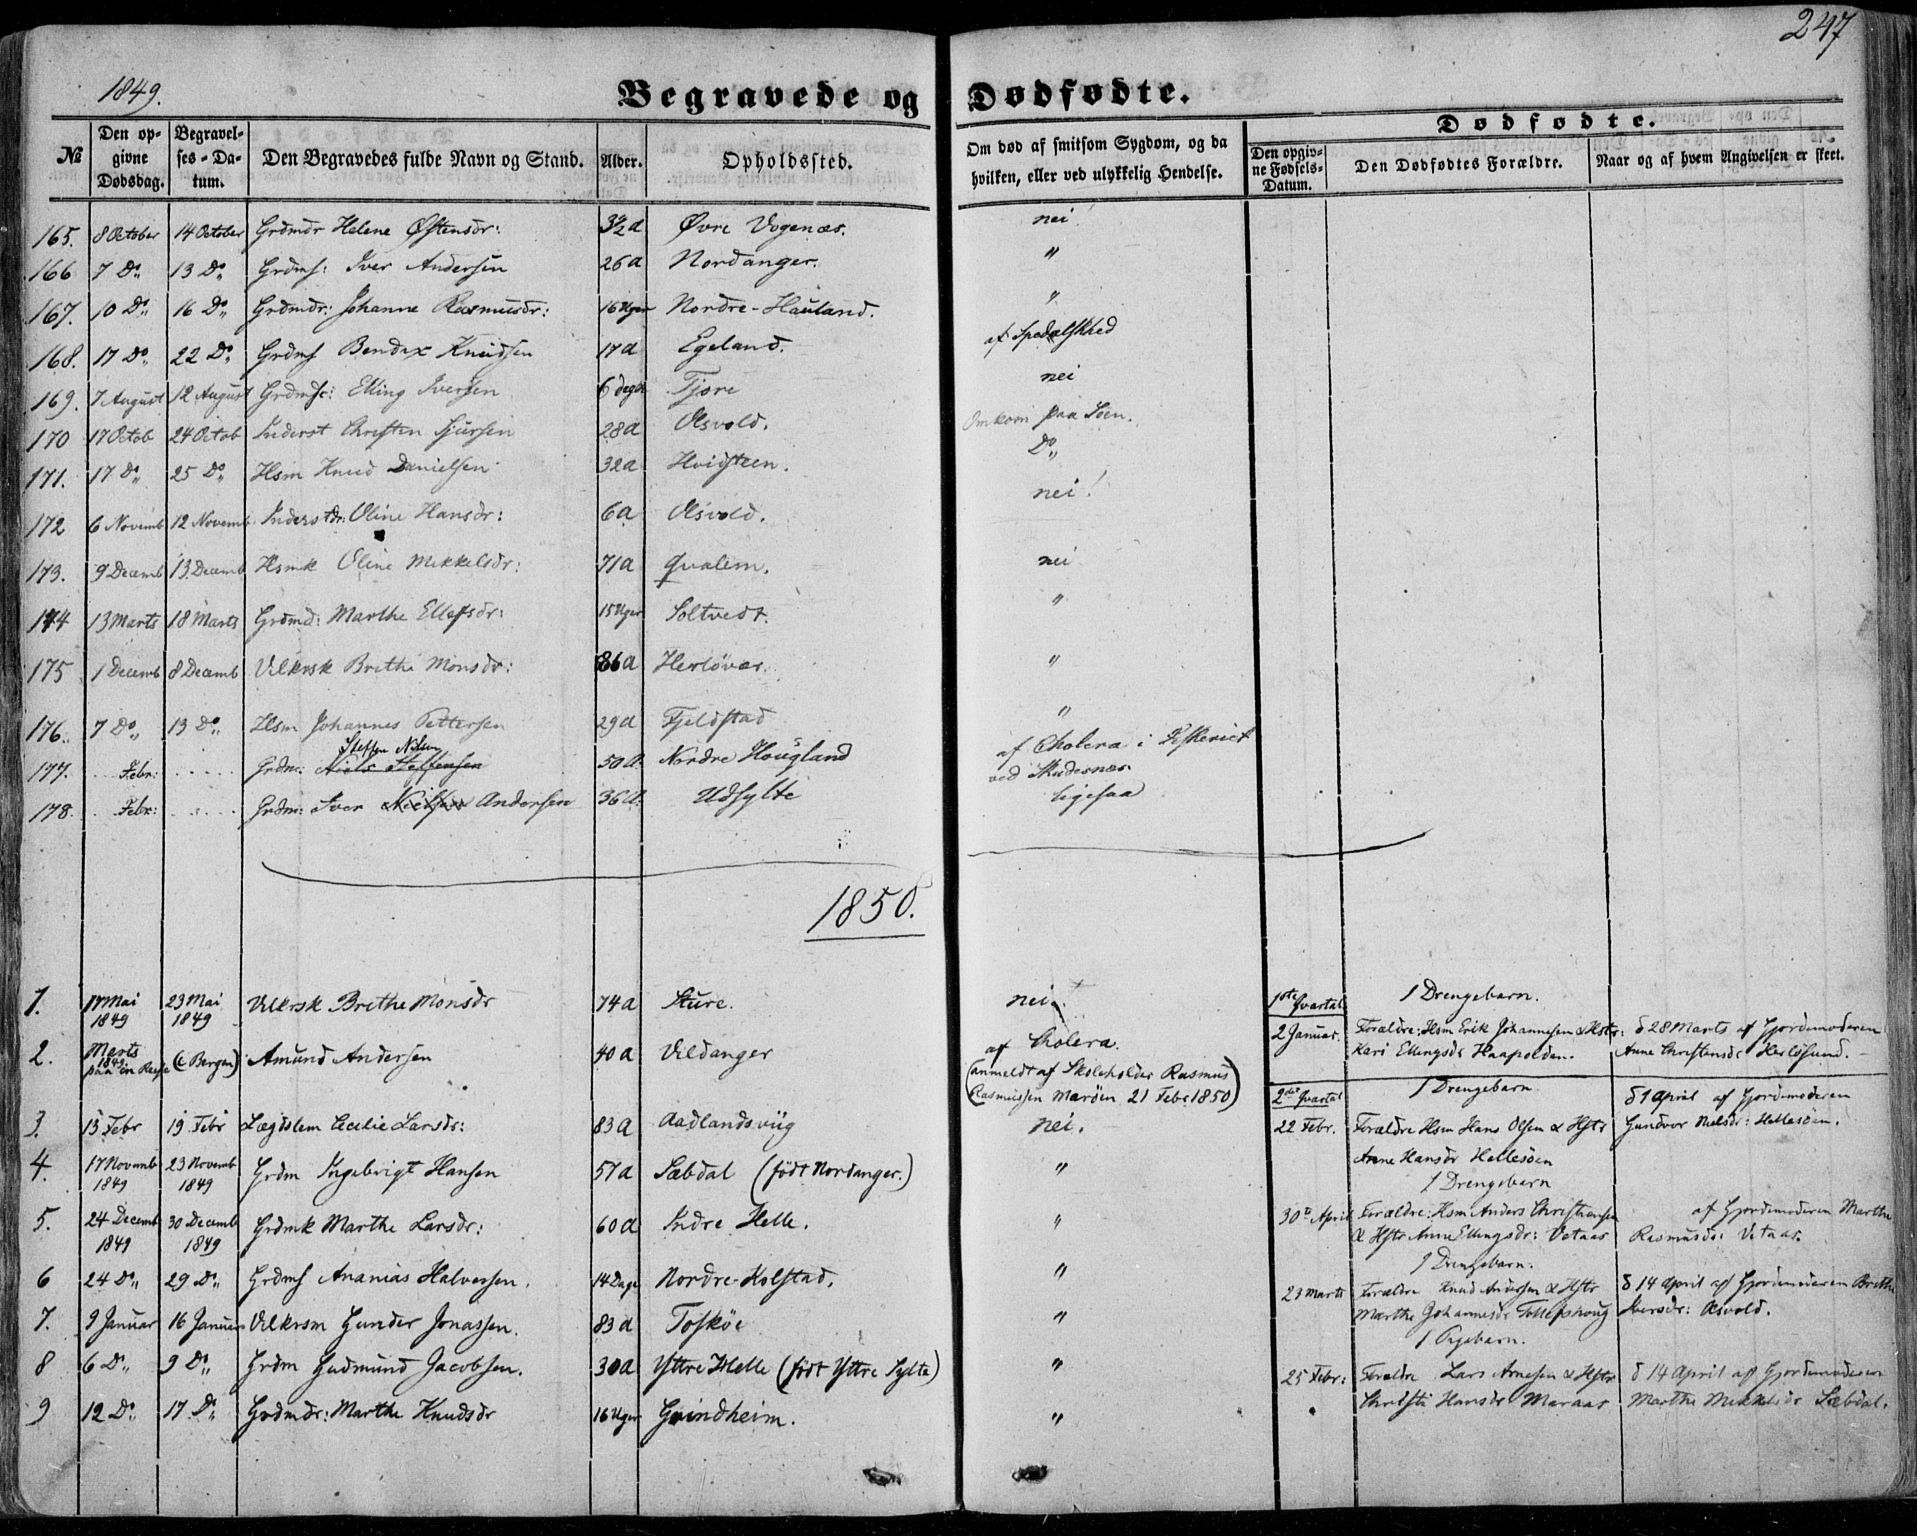 247
1849.
Begravede og Dødfødte.
№
Den opgivne Dødsdag.
Begravelses-Datum.
Den Begravedes fulde Navn og Stand.
Alder.
Opholdssted.
Om død af smitsom Sygdom, og da hvilken, eller ved ulykkelig Hendelse.
Dødfødte.
Den opgivne Fødsels-Datum.
Den Dødfødtes Forældre.
Naar og af hvem Angivelsen er skeet.
165. 8 October 14 October Grdmdr Helene Østensdr: Øvre Vogenæs. nei
166 7 Do„ 13 Do„ Grdms: Iver Andersen 26a Nordanger. "
167. 10 Do„ 16 Do„ Grdmdr: Johanne Rasmusdr: 16 Uger Nordre-Hauland. "
168. 17 Do„ 22 Do„ Grdms Bendix Knudsen 17a Egeland. af Spedalskhed
169. 7 August 12 August Grdms: Elling Iversen 6 dage Tjore nei
170 17 Octob 24 Octob Inderst Christen Sjursen 28a Olsvold. Omkom paa Søen.
171. 17 Do„ 25 Do Hsm Knud Danielsen 32a Hvidsteen. Do„
172 6 Novemb 12 Novemb Inderstdr: Oline Hansdr: 6a Olsvold. nei!
173. 9 Decemb 13 Decemb Hsmk Oline Mikkelsdr: 71a Qvalem. nei
174 13 Marts 18 Marts Grdmd: Marthe Ellefsdr: 15 Uger Soltvedt. "
175 1 Decemb 8 Decemb Vilkrsk Brithe Monsdr: 86a Herløvær. "
176. 7 Do„ 13 Do„ Hsm Johannes Pettersen 29a Fjeldstad "
Steffen Nilsen
177. .. Febr: ..... Grdm: Niels Steffensen 50a. Nordre Hougland af Cholera i Fiskeriet
ved Skudesnæs.
178. .. Febr: ..... Grdm: Iver Nielsen Andersen 36a. Udsylte ligesaa
1850.
1. 17 Mai 1849 23 Mai 1849 Vilkrsk Brithe Monsdr 74a Sture. nei.
2. Marts 1849 paa en Reise (i Bergen) Amund Andersen 40a Vildanger af Cholera.
(anmeldt af Skoleholder Rasmus
Rasmussen Marøen 21 Febr 1850)
3. 13 Febr 19 Febr Lægdslem Cecilie Larsdr: 83a Aadlandsviig nei.
4. 17 Novemb 1849 23 Novemb 1849 Grdm Ingebrigt Hansen 57a Sæbdal (født Nordanger.) "
5. 24 Decemb 1849 30 Decemb 1849 Grdmk Marthe Larsdr: 60a Indre Helle. "
6 24 Do„ 29 Do„ Grdms Ananias Halversen. 14 Dage Nordre-Kolstad. "
7. 9 Januar 16 Januar Vilkrsm Gunder Jonassen. 83a Toskøe "
8 6 Do„ 9 Do„ Grdm Gudmund Jacobsen. 30a Yttre Helle (født Yttre Sylte) "
9 12 Do„ 17 Do„ Grdmdr: Marthe Knudsdr 16 Uger Grindheim. "
1ste Qvartal 1 Drengebarn.
2 Januar. Forældre: Hsm Erik Johannesen & Hstr: d 28 Marts af Gjordemoderen
Kari Ellingsdr Haapolden. Anne Christensdr Herløsund.
2det Qvartal 1 Drengebarn. d 1 April af Gjordemoderen
22 Febr. Forældre Hsm Hans Olsen & Hstr Gundvor Nielsdr: Hellesøen.
Anne Hansdr Hellesøen
1 Drengebarn
30te April Forældre: Hsm Anders Christiansen af Gjordemoderen Marthe
& Hstr Anne Ellingsdr: Vetaas Rasmusdr: Vetaas.
1 Drengebarn.
23 Marts Forældre Knud Andersen & Hstr d 14 April af Gjordemoderen Brithe
Marthe Johannesdr Tollefshoug Iversdr: Olsvold.
1 Pigebarn.
25 Febr: Forældre Lars Arnesen & Hstr d 14 April af Gjordemoderen
Christi Hansdr Maraas Marthe Mikkelsdr Sæbdal.